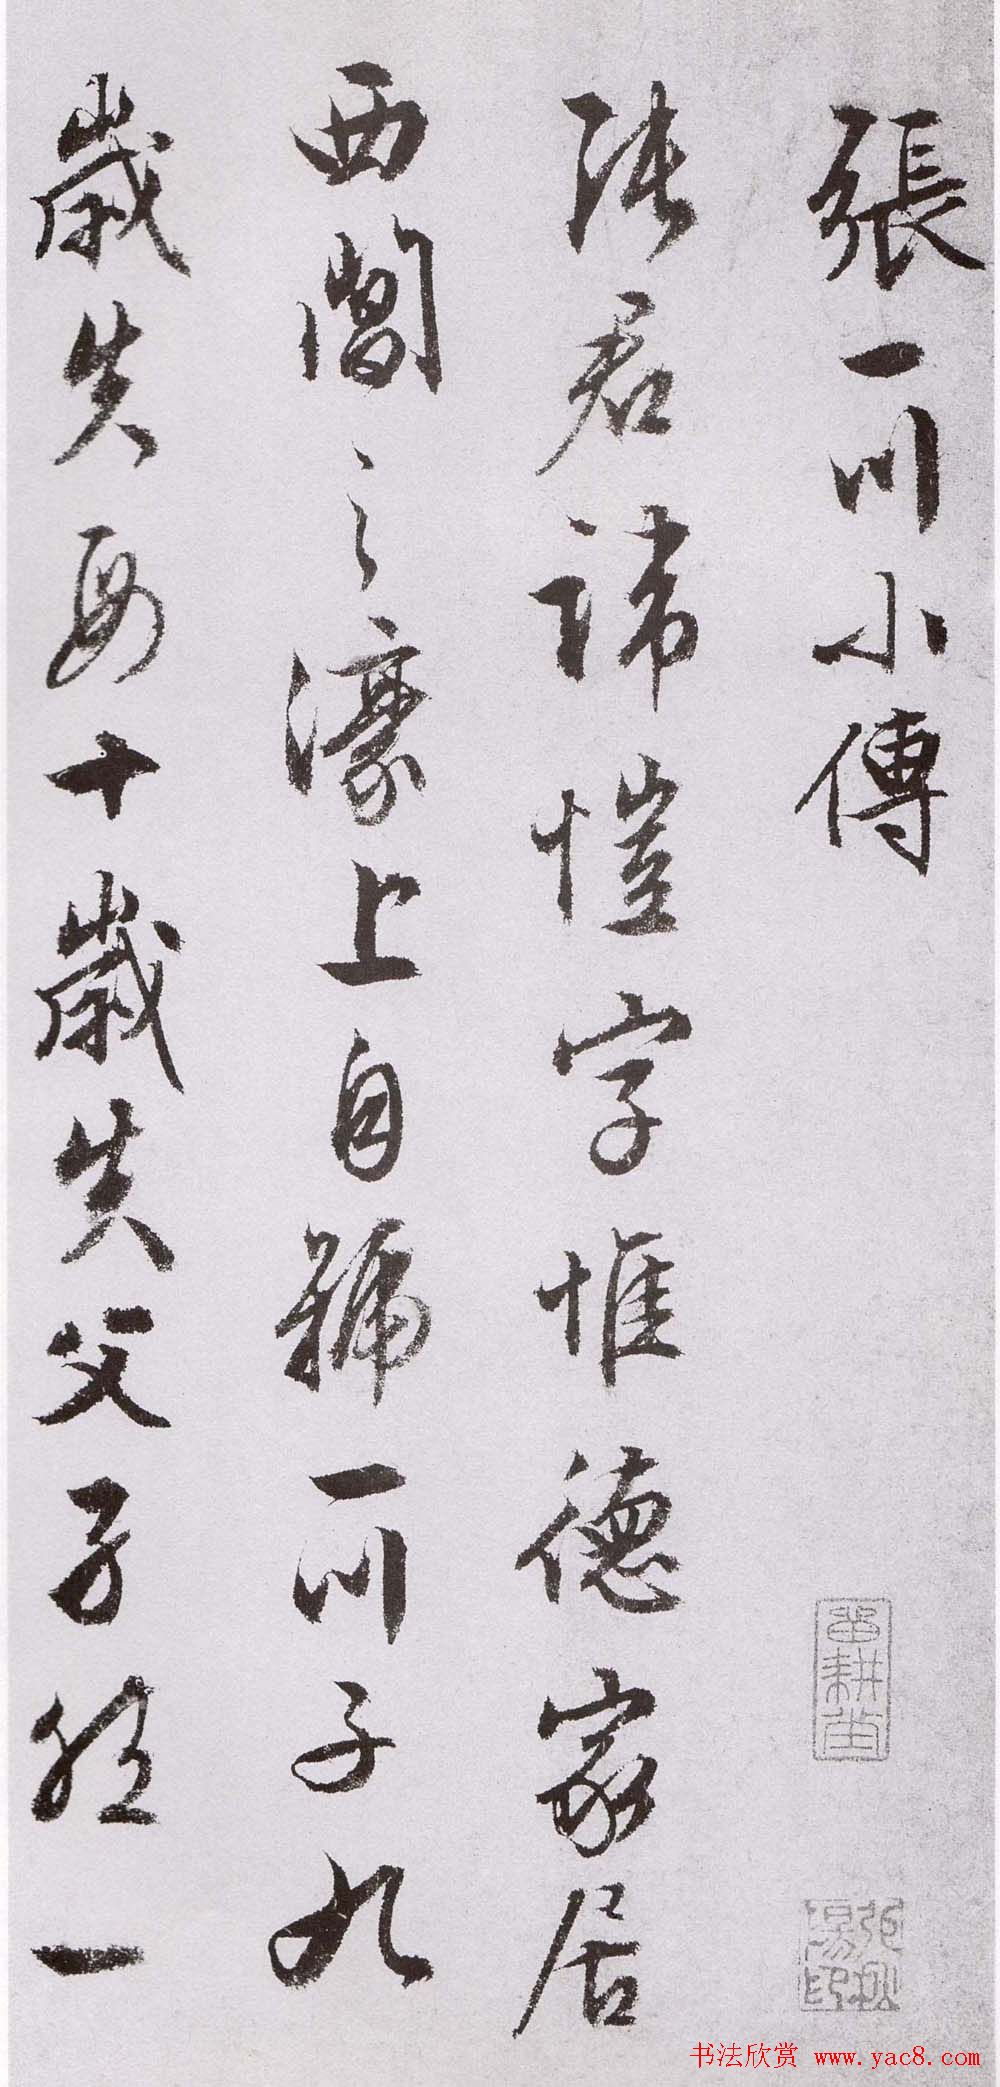 張一川小傳
張君諱愷字惟德家居
西閶之濠上自號一川子九
歲失母十歲失父子然一
書法欣赏 www.yac8.com